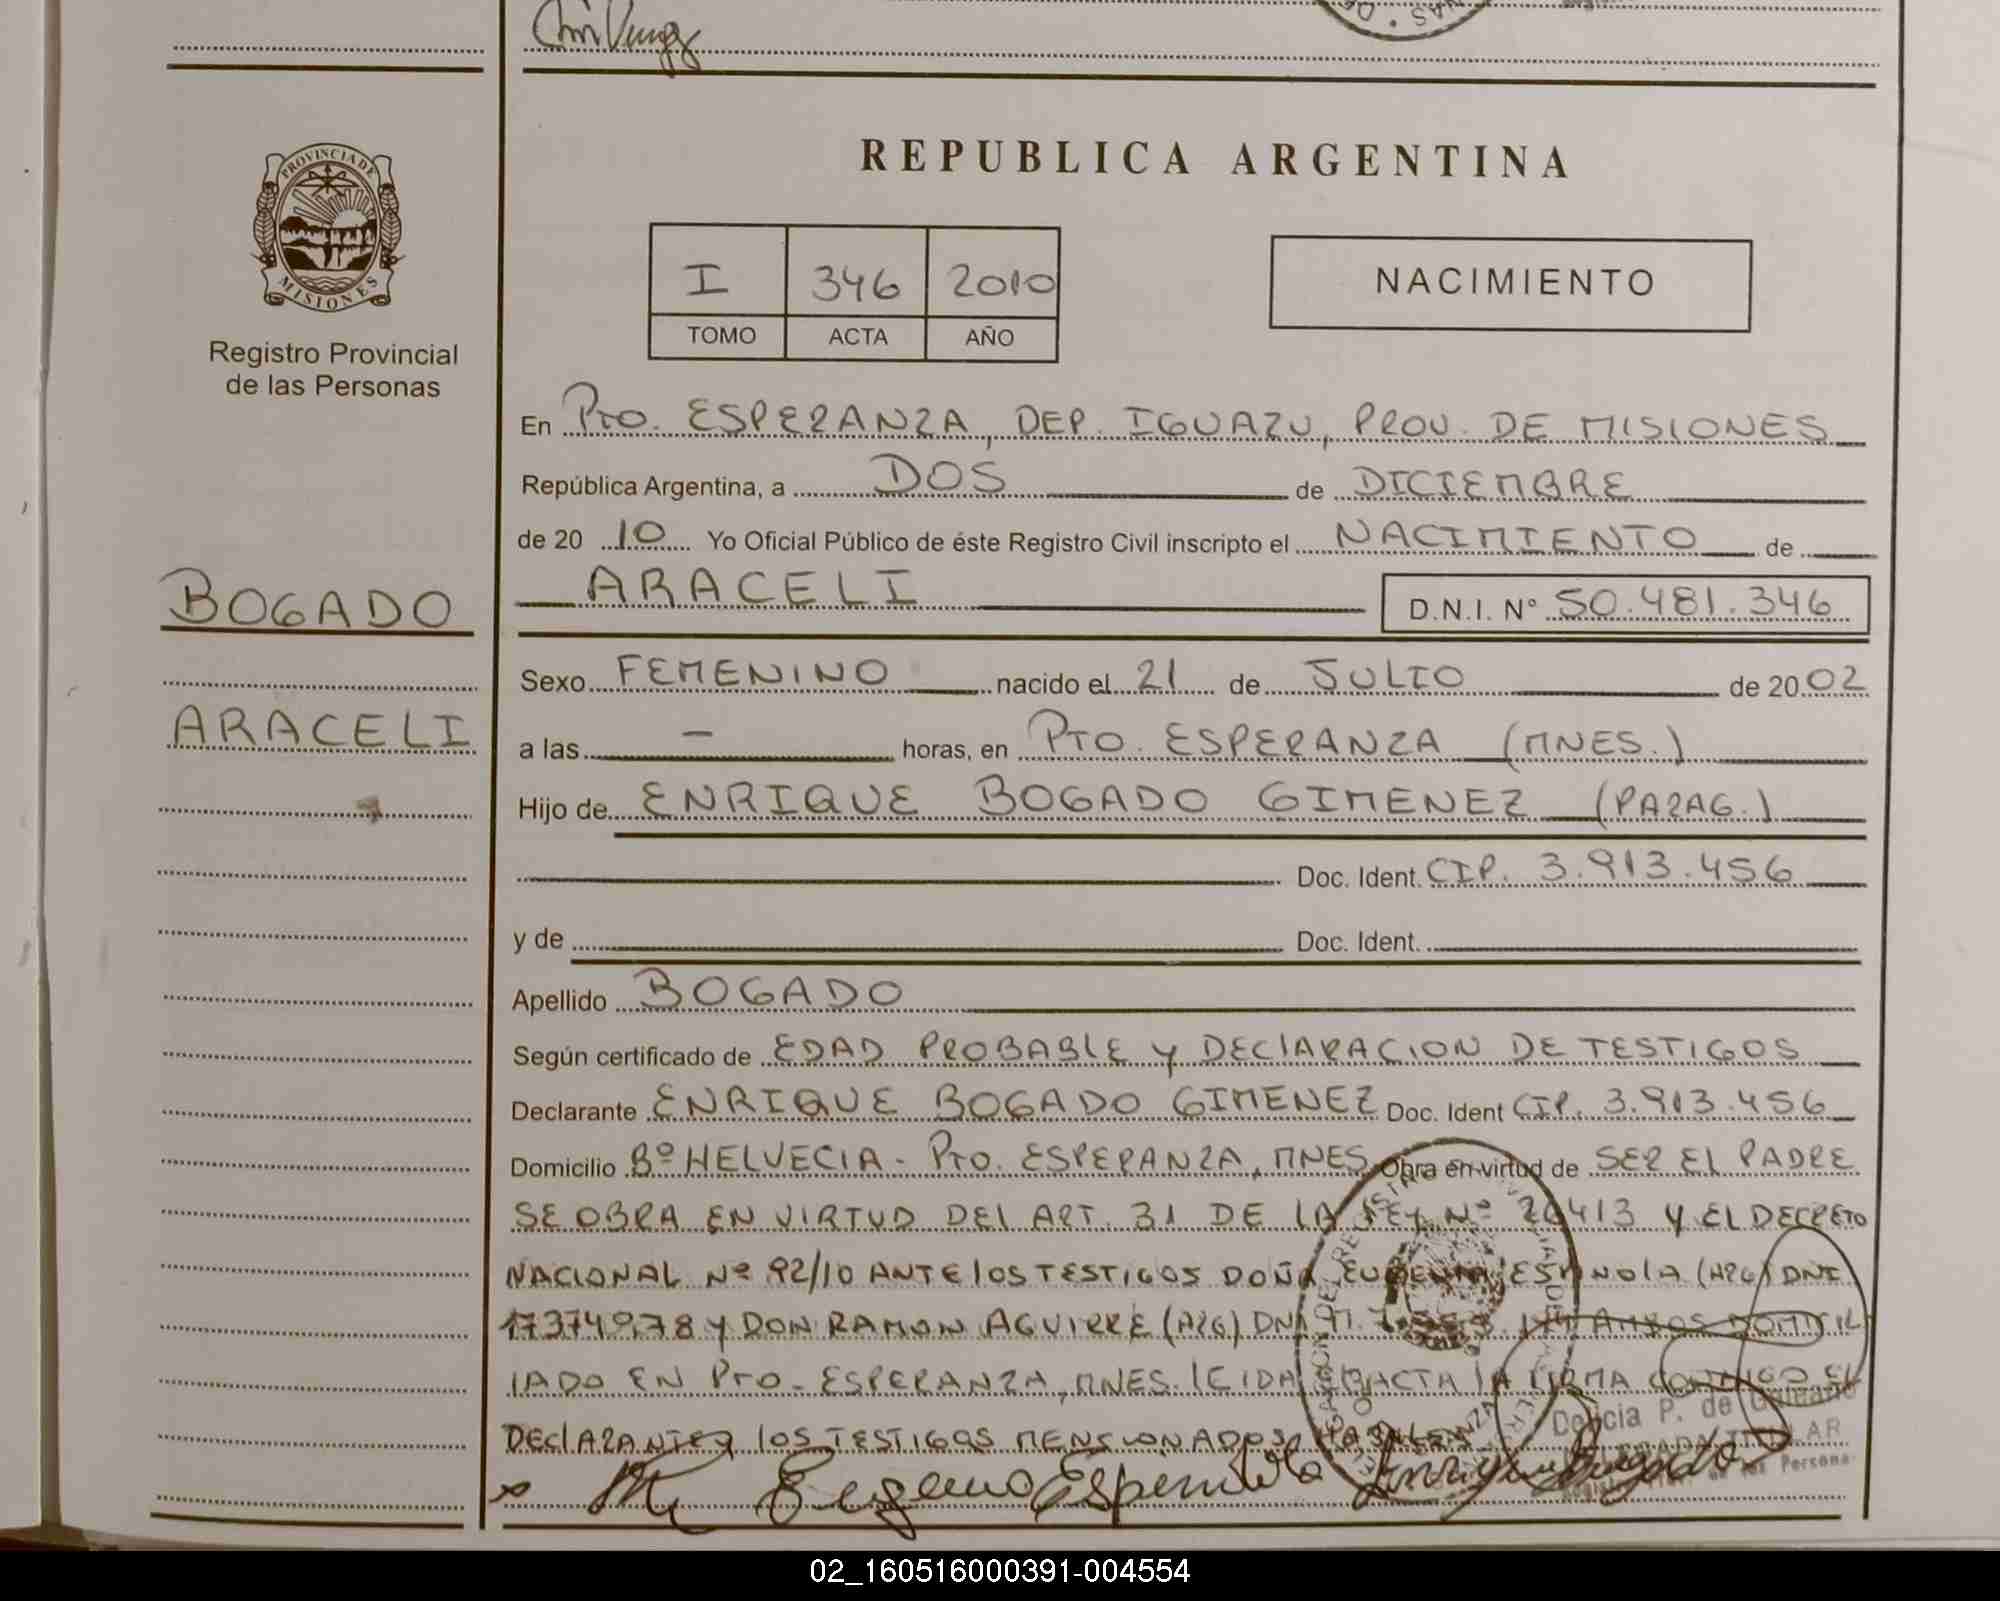 PROVINCIA DE
MISIONES
Registro Provincial
de las Personas
BOGADO
ARACELI
REPUBLICA ARGENTINA
I 346 2010
TOMO ACTA AÑO
NACIMIENTO
En PTO. ESPERANZA, DEP. IGUAZU, PROV. DE MISIONES
República Argentina, a DOS de DICIEMBRE
de 20 10 Yo Oficial Público de éste Registro Civil inscripto el NACIMIENTO de
ARACELI D.N.I. N° 50.481.346
Sexo FEMENINO nacido el 21 de JULIO de 20 02
a las - horas, en PTO. ESPERANZA (MNES.)
Hijo de ENRIQUE BOGADO GIMENEZ (PARAG.)
Doc. Ident. CIP. 3.913.456
y de Doc. Ident.
Apellido BOGADO
Según certificado de EDAD PROBABLE Y DECLARACION DE TESTIGOS
Declarante ENRIQUE BOGADO GIMENEZ Doc. Ident CIP. 3.913.456
Domicilio Bº HELVECIA - PTO. ESPERANZA, MNES Obra en virtud de SER EL PADRE
SE OBRA EN VIRTUD DEL ART. 31 DE LA LEY Nº 26413 Y EL DECRETO
NACIONAL Nº 92/10 ANTE LOS TESTIGOS DOÑA EUGENIA ESPINOLA (ARG) DNI
17374978 Y DON RAMON AGUIRRE (ARG) DNI M. AMBOS DOMICIL
IADO EN PTO - ESPERANZA, MNES. LEIDA EL ACTA LA FIRMA CONMIGO EL
DECLARANTE Y LOS TESTIGOS MENCIONADOS
Delicia P. de Galeano
02_160516000391-004554